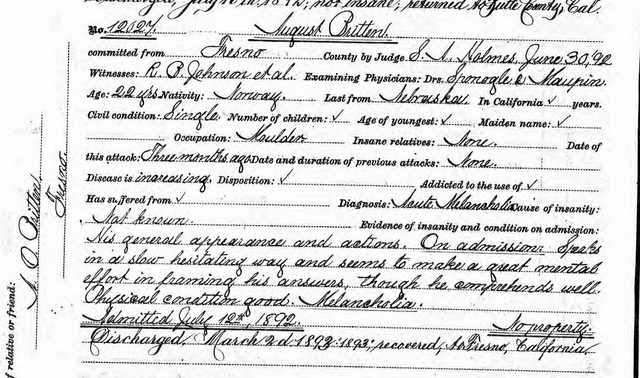 Discharged, July 10th, 1892; not insane; returned to Butte County, Cal.
No. 12027. August Britten.
committed from Fresno County by Judge S. A. Holmes, June 30, '92
Witnesses: R. P. Johnson et al. Examining Physicians: Drs. Sponogle & Maupin.
Age: 22 yrs. Nativity: Norway. Last from Nebraska. In California ✓ years.
Civil condition: Single. Number of children: ✓ Age of youngest: ✓ Maiden name: ✓
Occupation: Moulder Insane relatives: None. Date of
this attack: Three months ago Date and duration of previous attacks: None.
Disease is increasing. Disposition: ✓ Addicted to the use of ✓
Has suffered from ✓ Diagnosis: Acute Melancholia Cause of insanity:
Not known. Evidence of insanity and condition on admission:
His general appearance and actions. On admission: Speaks
in a slow hesitating way and seems to make a great mental
effort in framing his answers, though he comprehends well.
Physical condition good. Melancholia.
Admitted July 12th, 1892. No property.
Discharged, March 2d 1893 1893; recovered, to Fresno, California.
of relative or friend:
Britten.
Fresno.